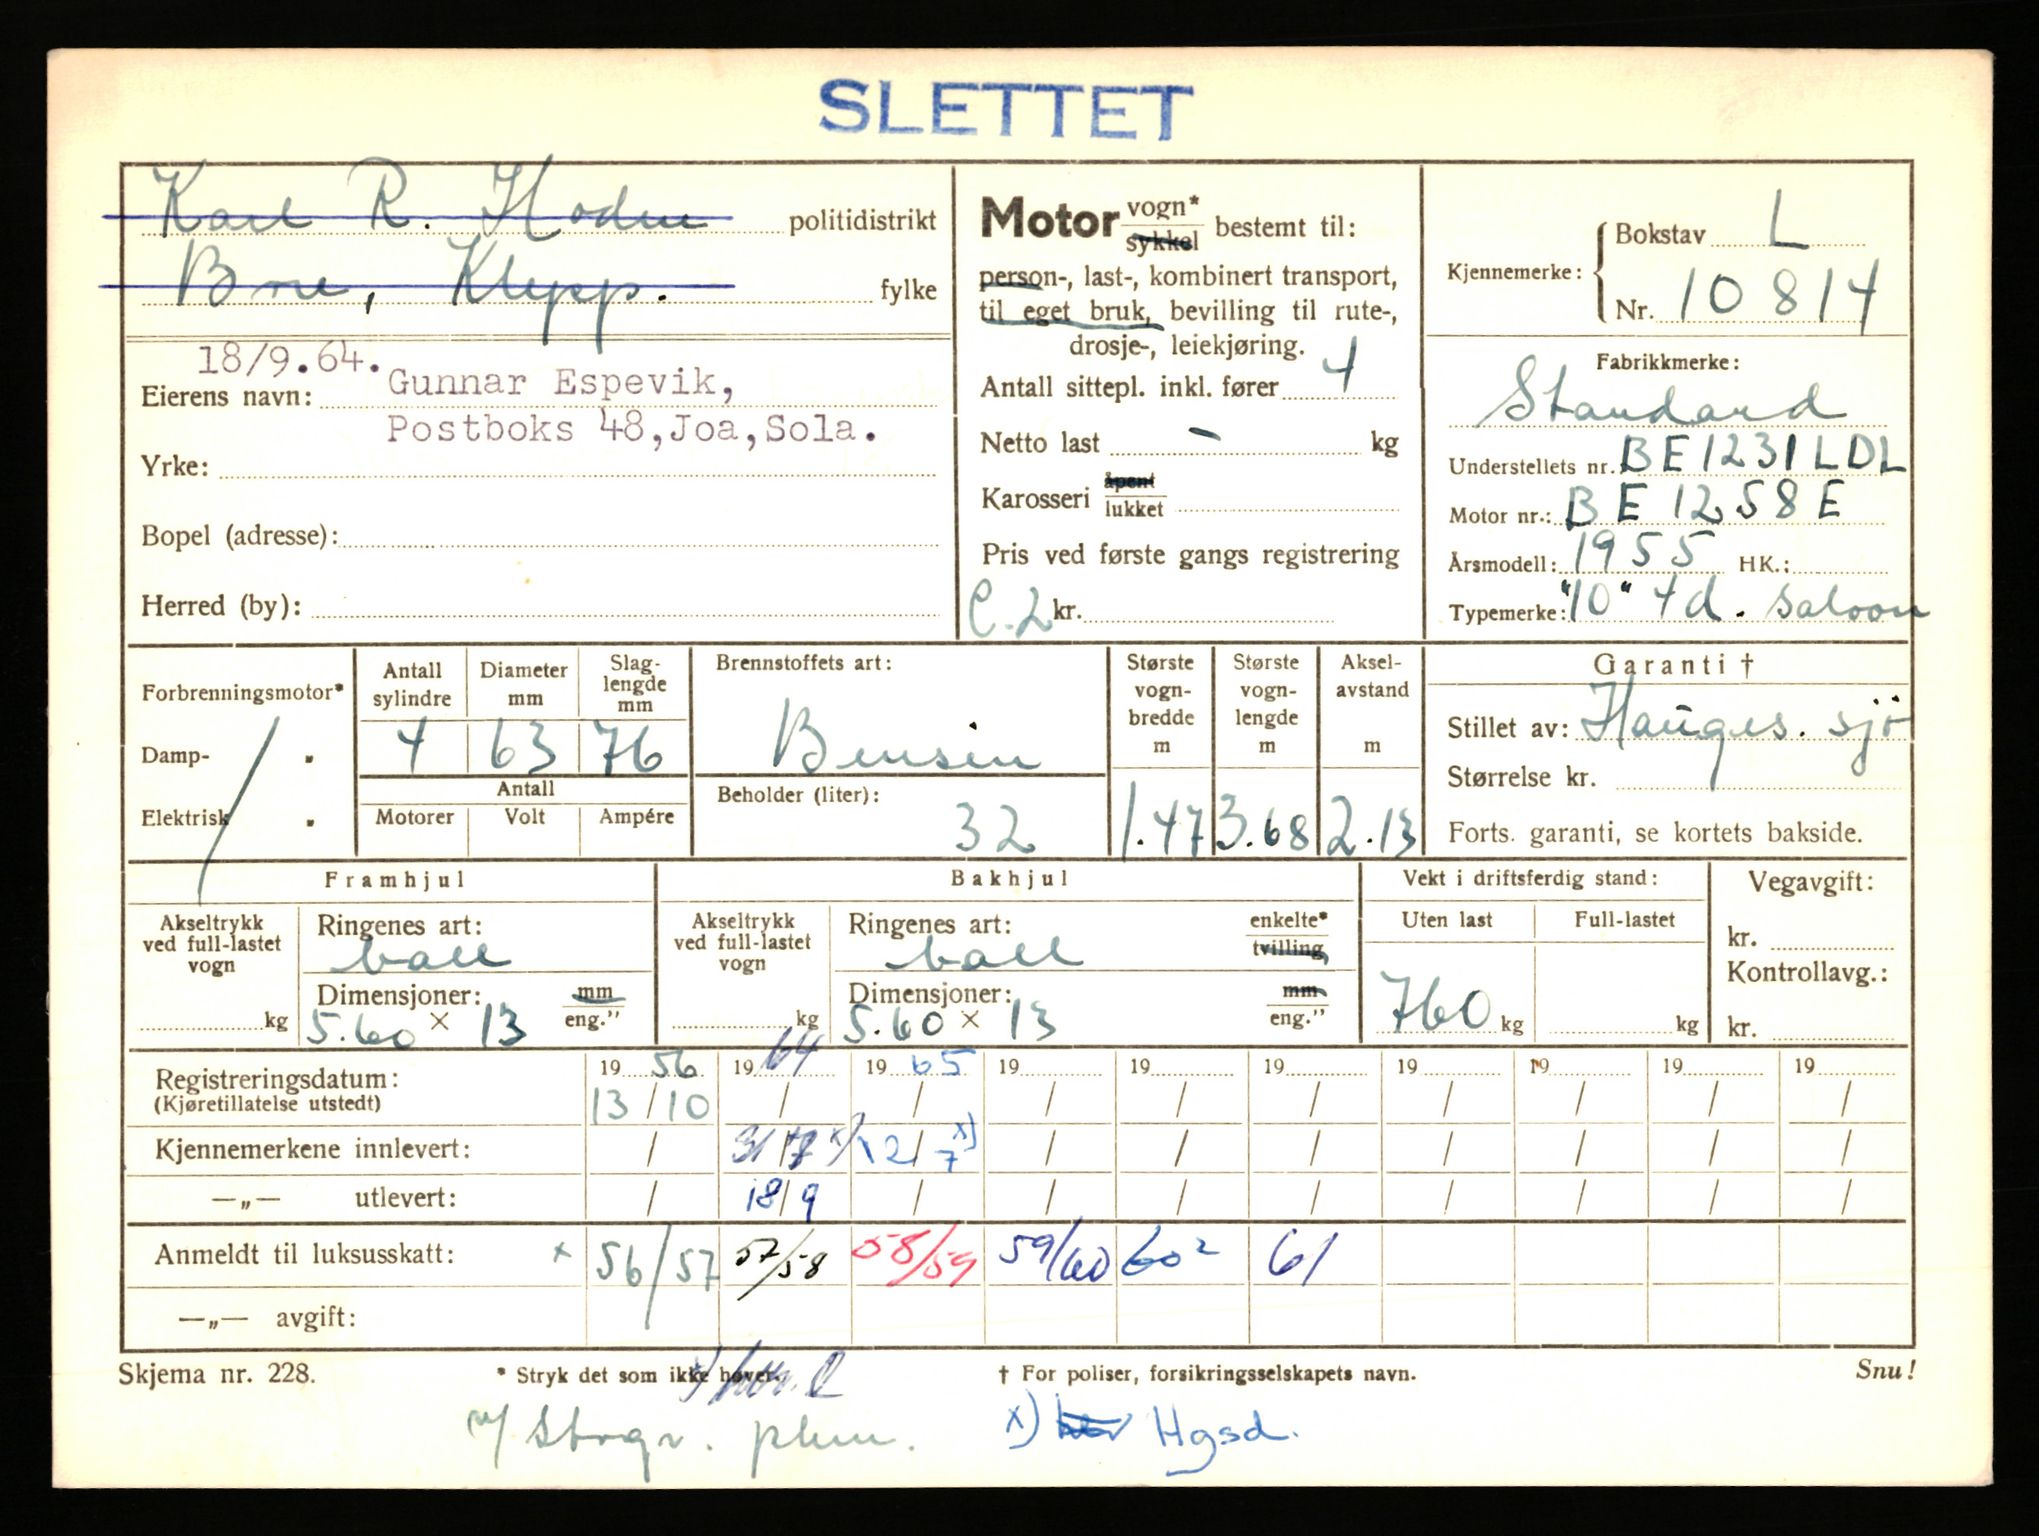 SLETTET
Karl R. Hodne politidistrikt
Bore, Klepp. fylke
18/9.64.
Eierens navn: Gunnar Espevik,
Postboks 48, Joa, Sola.
Yrke:
Bopel (adresse):
Herred (by):
Motor vogn* sykkel bestemt til:
person-, last-, kombinert transport,
til eget bruk, bevilling til rute-,
drosje-, leiekjøring.
Antall sittepl. inkl. fører 4
Netto last - kg
Karosseri åpent lukket
Pris ved første gangs registrering
C.2 kr.
Kjennemerke: Bokstav L
Nr. 10814
Fabrikkmerke:
Standard
Understellets nr. BE1231LDL
Motor nr.: BE 1258 E
Årsmodell: 1955 HK.:
Typemerke: "10" 4d. saloon
Forbrenningsmotor*
Damp- "
Elektrisk "
Antall sylindre 4
Diameter mm 63
Slag-lengde mm 76
Antall
Motorer Volt Ampére
Brennstoffets art:
Bensin
Beholder (liter):
32
Største vogn-bredde m 1.47
Største vogn-lengde m 3.68
Aksel-avstand m 2.13
Garanti †
Stillet av: Hauges. sjø
Størrelse kr.
Forts. garanti, se kortets bakside.
Framhjul
Akseltrykk ved full-lastet vogn
kg
Ringenes art:
ball
Dimensjoner: mm eng."
5.60 × 13
Bakhjul
Akseltrykk ved full-lastet vogn
kg
Ringenes art: enkelte* tvilling
ball
Dimensjoner: mm eng."
5.60 × 13
Vekt i driftsferdig stand:
Uten last Full-lastet
760 kg kg
Vegavgift:
kr.
Kontrollavg.:
kr.
Registreringsdatum: 19 56 19 64 19 65 19 19 19 19 19 19 19
(Kjøretillatelse utstedt) 13/10 / / / / / / / / /
Kjennemerkene innlevert: / 31/7 x) 12/7 x) / / / / / / /
—„— utlevert: / 18/9 / / / / / / / /
Anmeldt til luksusskatt: x 56/57 57/58 58/59 59/60 60² 61
—„— avgift:
Skjema nr. 228. * Stryk det som ikke høver. † For poliser, forsikringsselskapets navn. Snu!
x) Hgsd.